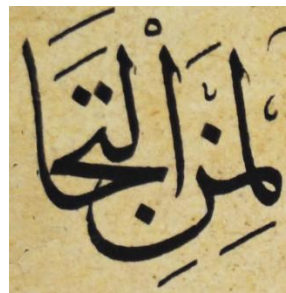 لِمَنِ الْتَجَا